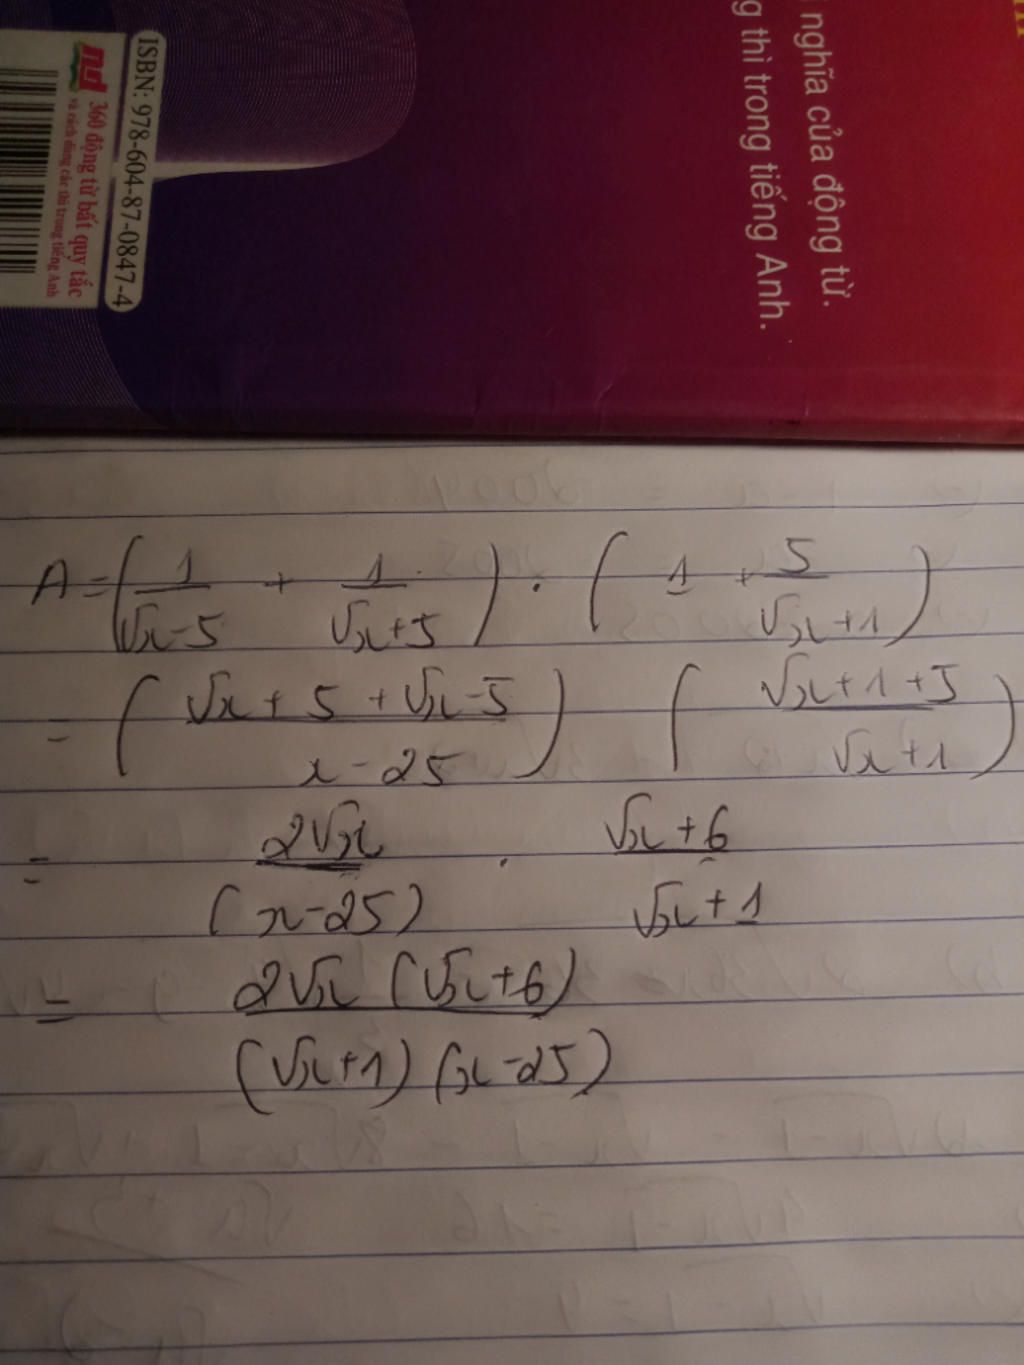 nghĩa của động từ.
g thì trong tiếng Anh.
ISBN: 978-604-87-0847-4
360 động từ bất quy tắc
và cách dùng các thì trong tiếng Anh
A = (1/(√x-5) + 1/(√x+5)) . (1 + 5/(√x+1))
= ((√x+5+√x-5)/(x-25)) ((√x+1+5)/(√x+1))
= 2√x/(x-25) . (√x+6)/(√x+1)
= 2√x(√x+6)/((√x+1)(x-25))